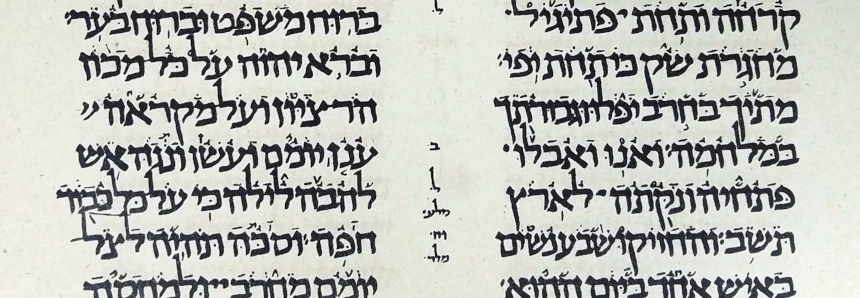 קרחה ותחת פתיגיל
מחגרת שק כי תחת יפי׃
מתיך בחרב יפלו וגבורתך
במלחמה׃ ואנו ואבלו
פתחיה ונקתה לארץ
תשב׃ והחזיקו שבע נשים
באיש אחד ביום ההוא
ל
ב
ל
ברוח משפט וברוח בער׃
וברא יהוה על כל מכון
הר ציון ועל מקראה
ענן יומם ועשן ונגה אש
להבה לילה כי על כל כבוד
חפה׃ וסכה תהיה לצל
יומם מחרב ולמחסה